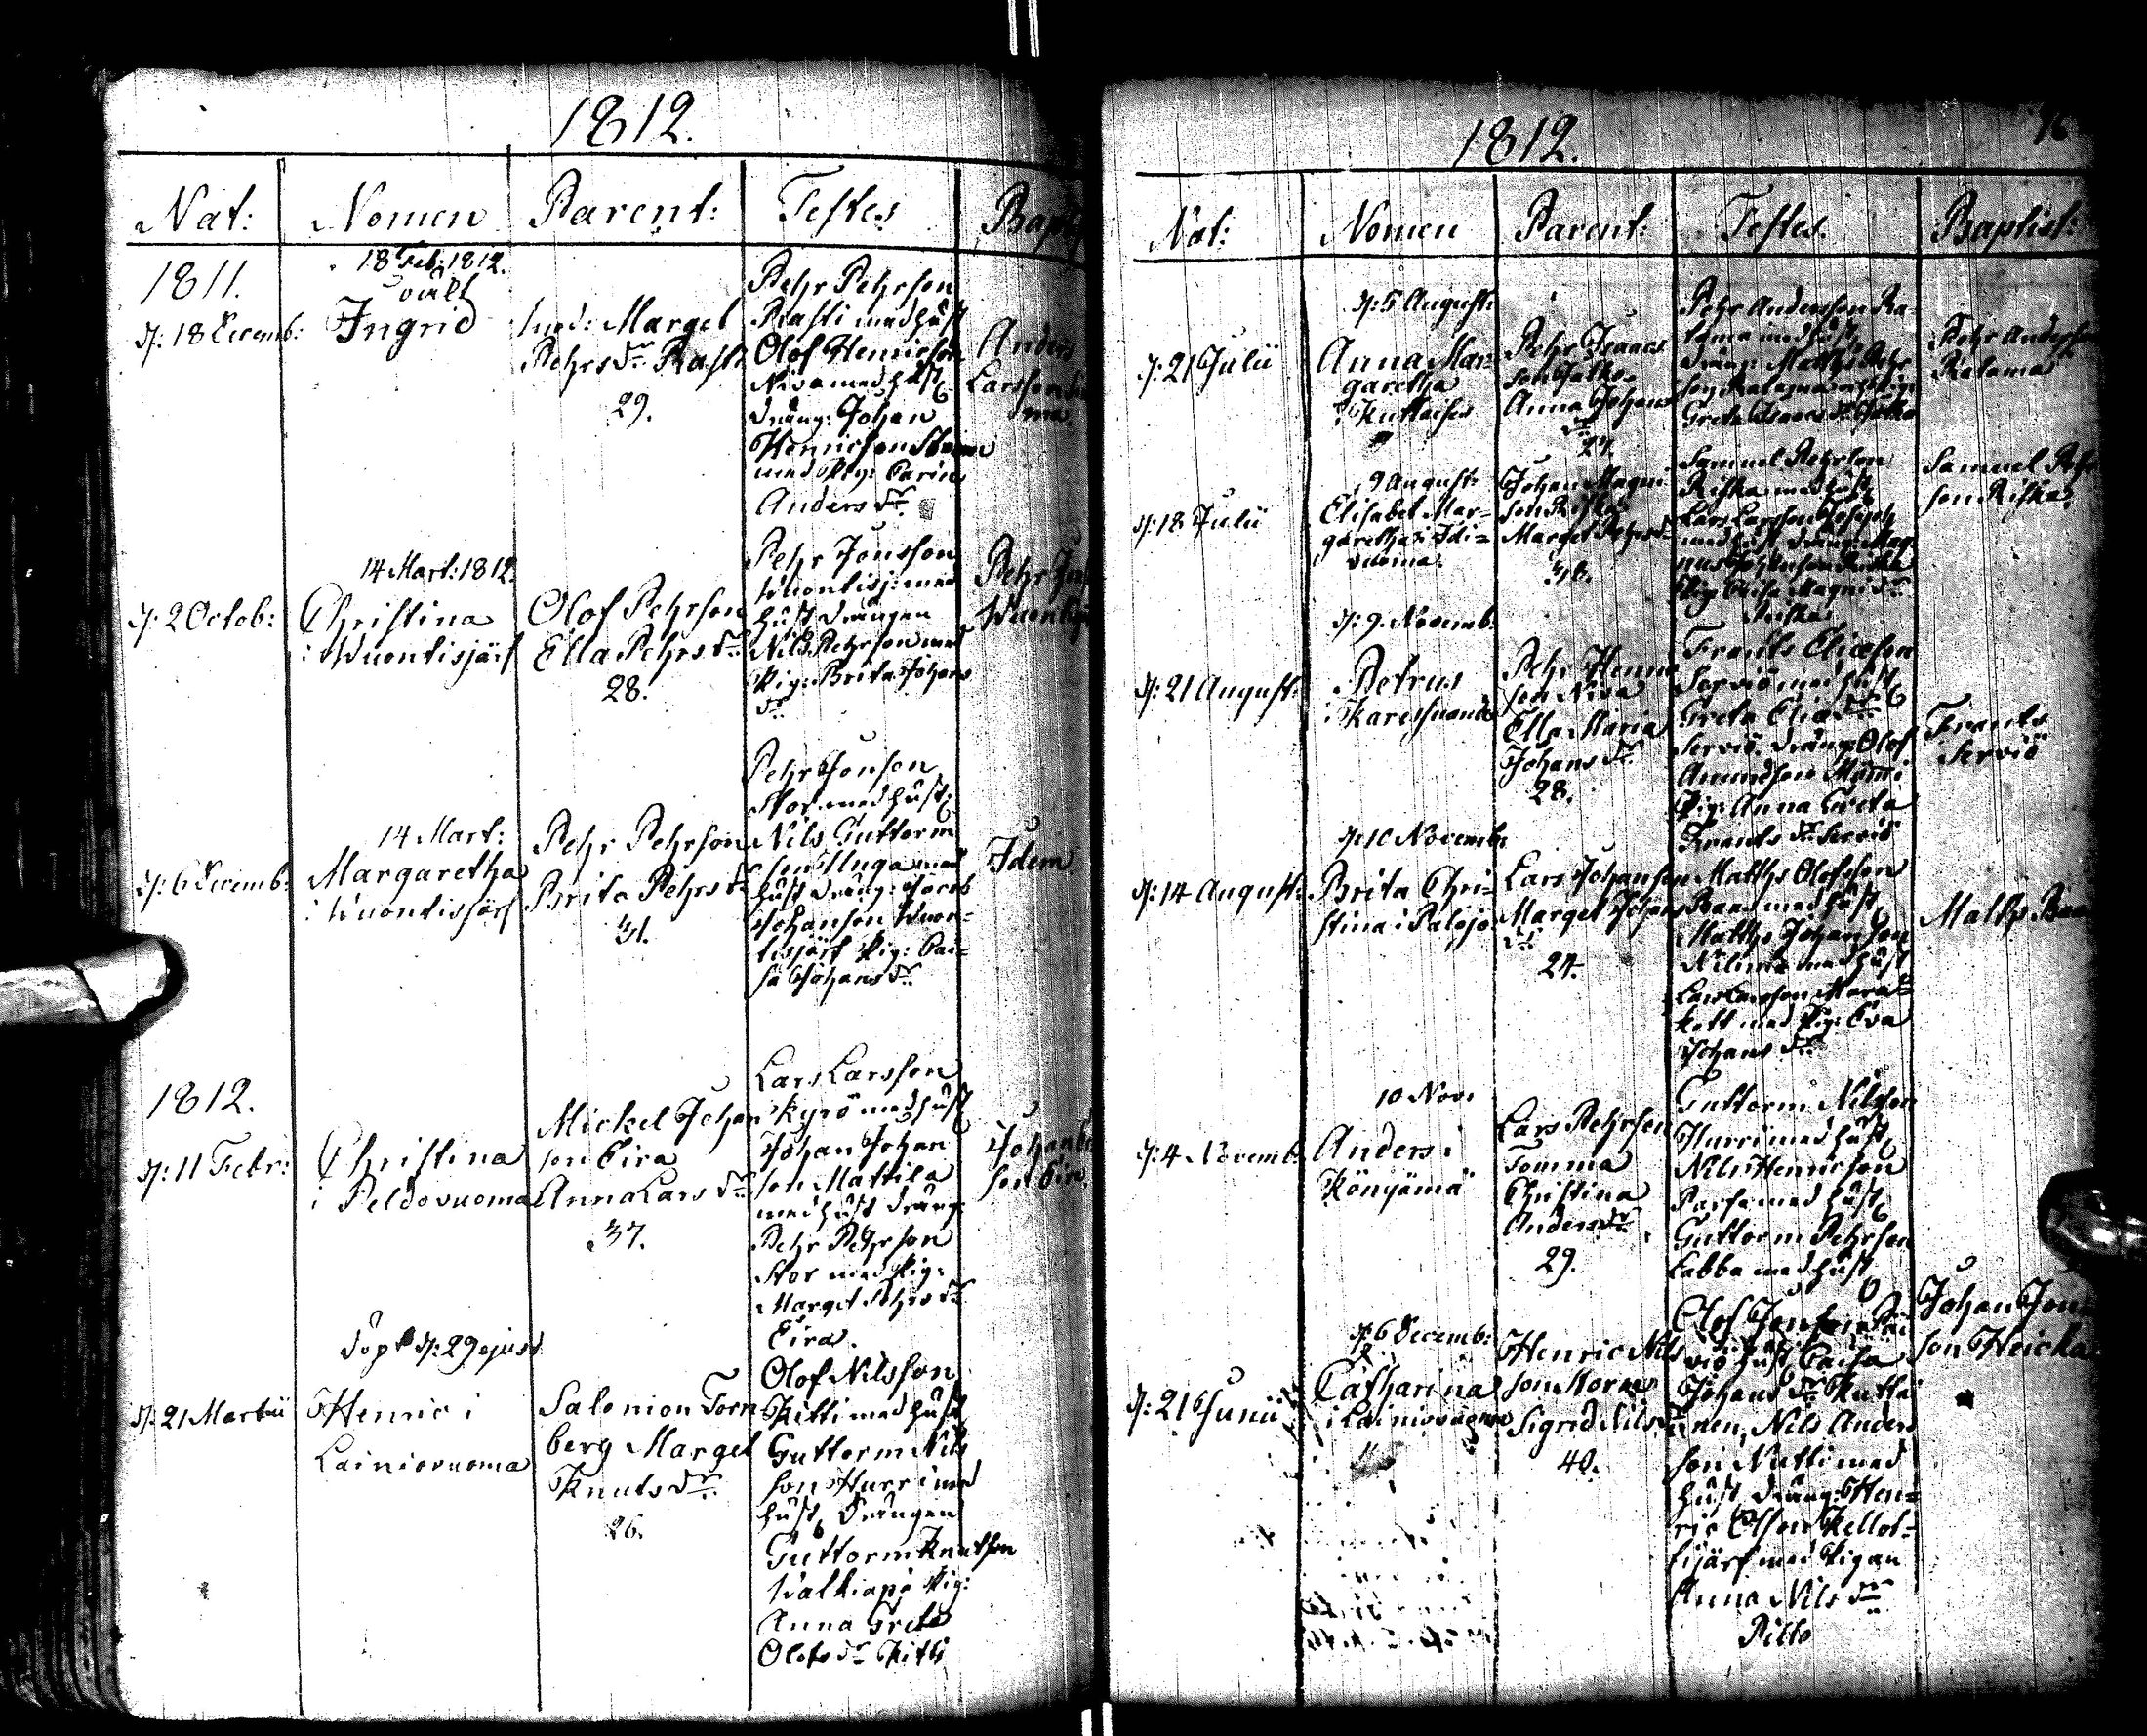 1812.
Nat: Nomen Parent: Testes Bapt
1811.
d: 18 Decemb:
18 Feb: 1812.
oäkt
Ingrid
Margel
Pehrs dr Rasti
29.
Pehr Pehrson
Rasti med hust
Olof Henricson
Niva med hust
dräng: Johan
Henricson
med Pig: Carin
Anders dr.
Anders
Larsson
d: 2 Octob:
14 Mart: 1812.
Christina
i Wuontisjärf
Olof Pehrson
Ella Pehrs dr
28.
Pehr Jonsson
Wuontisj: med
hust drängen
Nils Pehrson med
Pig: Brita Johans
dr.
Pehr
d: 6 Decemb:
14 Mart:
Margaretha
i Wuontisjärf
Pehr Pehrson
Brita Pehrs dr
31.
Pehr Jonson
Stor med hust:
Nils Guttorm
son Sluga med
hust dräng: Jacob
Johanson Wuon-
tisjärf Pig: Cai-
sa Johans dr
Idem
1812.
d: 11 Febr:
Christina
i Peldovuoma
Mickel Johan
son Eira
Anna Lars dr
37.
Lars Larsson
Kyrö med hust
Johan Johan
son Mattila
med hust dräng:
Pehr Pehrson
Stor med Pig:
Marget Pehrs dr
Eira.
Johan
son Eira
d: 21 Martii
Döpt d: 29 ejusd
Henric i
Lainiovuoma
Salomon Torn
berg Margel
Knuts dr.
26.
Olof Nilsson
Kitti med hust
Guttorm Nils
son Hurri med
hust, Drängen
Guttorm Knutson
Walkiapä Pig:
Anna Greta
Olofs dr Kitti
1812.
Nat: Nomen Parent: Testes. Baptist:
d: 21 Julii
d: 5 August:
Anna Mar-
garetha
i Kuttaise
Pehr Isaacs
son
Anna Johans
dr
27.
Pehr Anderson Ra-
tama med hust
dräng: Matths Pehr
son Ratama
Greta Isaacs dr
Pehr Anderson
Ratama
d: 18 Julii
9 August:
Elisabet Mar-
garetha i Idi-
vuoma.
Johan Magni
son Riska
Marget Pehrs dr
36.
Samuel Pehrson
Riska med hust
Lars Larsson
med hust dräng: Mag
nus Johanson
Pig: Caisa Magni dr
Riska
Samuel Pehr
son Riska
d: 21 August:
d: 9. Novemb:
Petrus
i Karesuando
Pehr Henric
son Niva
Ella Maria
Johans dr
28.
Frants Eliæson
Serviö med hust
Greta Eliæ dr
Serviö. dräng Olof
Amundson
Pig: Anna Greta
Frants dr Serviö
Frants
Serviö
d: 14 August:
d: 10 Novemb:
Brita Chri-
stina i Palojo
Lars Johanson
Margel Johans
dr
24.
Matths Olofsson
med hust
Matths Johanson
Nilima med hust
Lars Larsson Mara-
katt med Pig: Eva
Johans dr
Matths
d: 4 Novemb:
10 Nov:
Anders i
Köngämä
Lars Pehrson
Tomma
Christina
Anders dr
29.
Guttorm Nilsson
Hurri med hust
Nils Henricson
Parfa med hust
Guttorm Pehrson
Labba med hust
d: 21 Junii
d: 6 Decemb:
Catharina
i Lainiovuoma
Henric Nils
son
Sigrid Nils dr
40.
Olof Jonson
hust Caisa
Johans dr Kuttai
nen, Nils Anders
son Nutti med
hust, dräng: Hen-
ric Olson Kellot-
tijärf med Pigan
Anna Nils dr
Pilto
Johan Jon
son Heicka